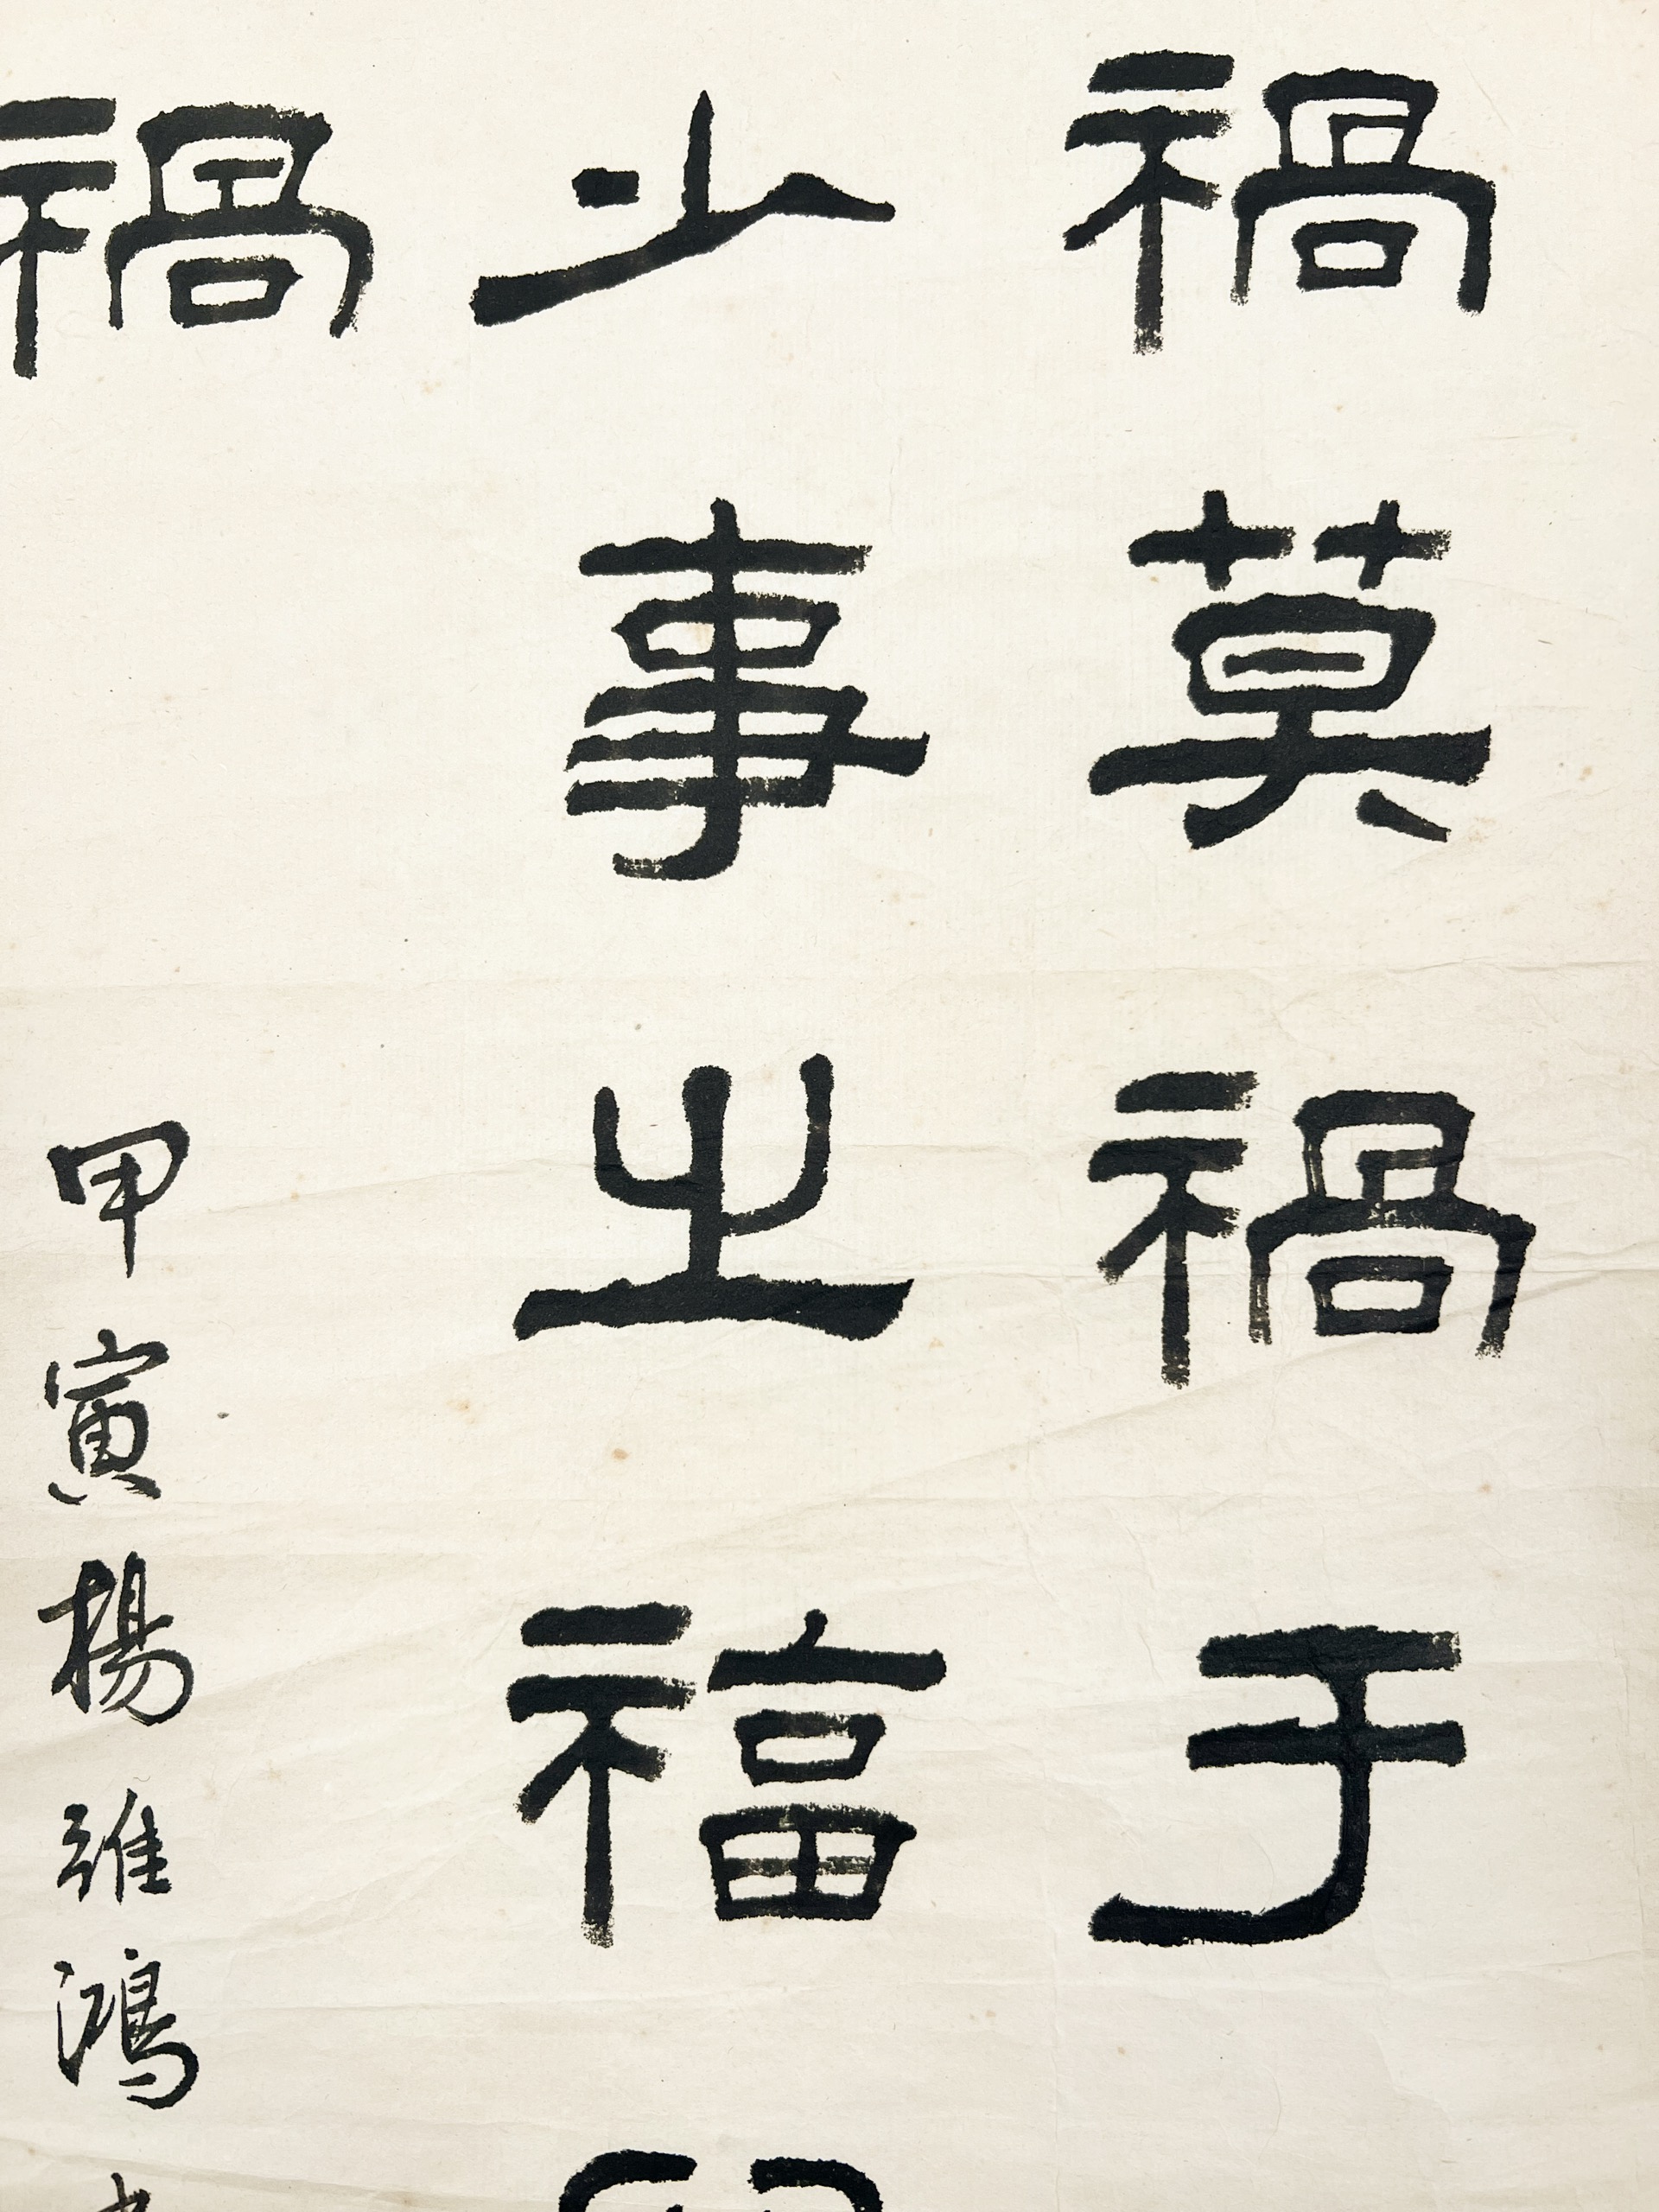 禍莫禍于
少事之福
禍
甲寅楊維鴻